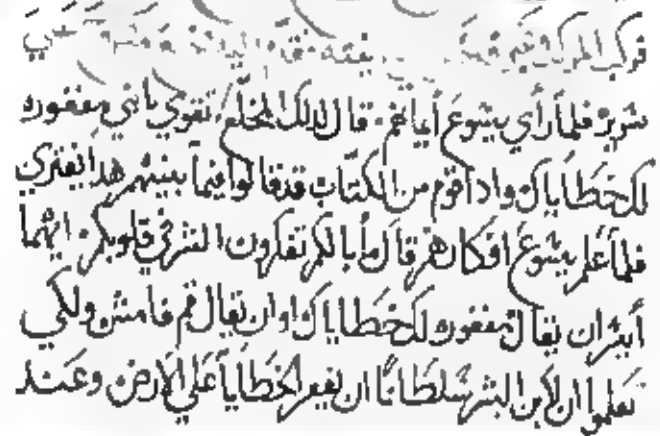 فركب المركب
سرير فلما رأي يشوع أيمانهم قال لذلك المخلع تقوي يا بني مغفوره
لك خطاياك واذا قوم من الكتاب قد قالوا فيما بينهم هذا يفتري
فلما علم يشوع افكارهم قال ما بالكم تفكرون الشر في قلوبكم ايهما
أيسر ان يقال مغفوره لك خطاياك او ان يقال قم فامش ولكي
تعلموا ان لابن البشر سلطانًا ان يغفر الخطايا علي الارض وعند